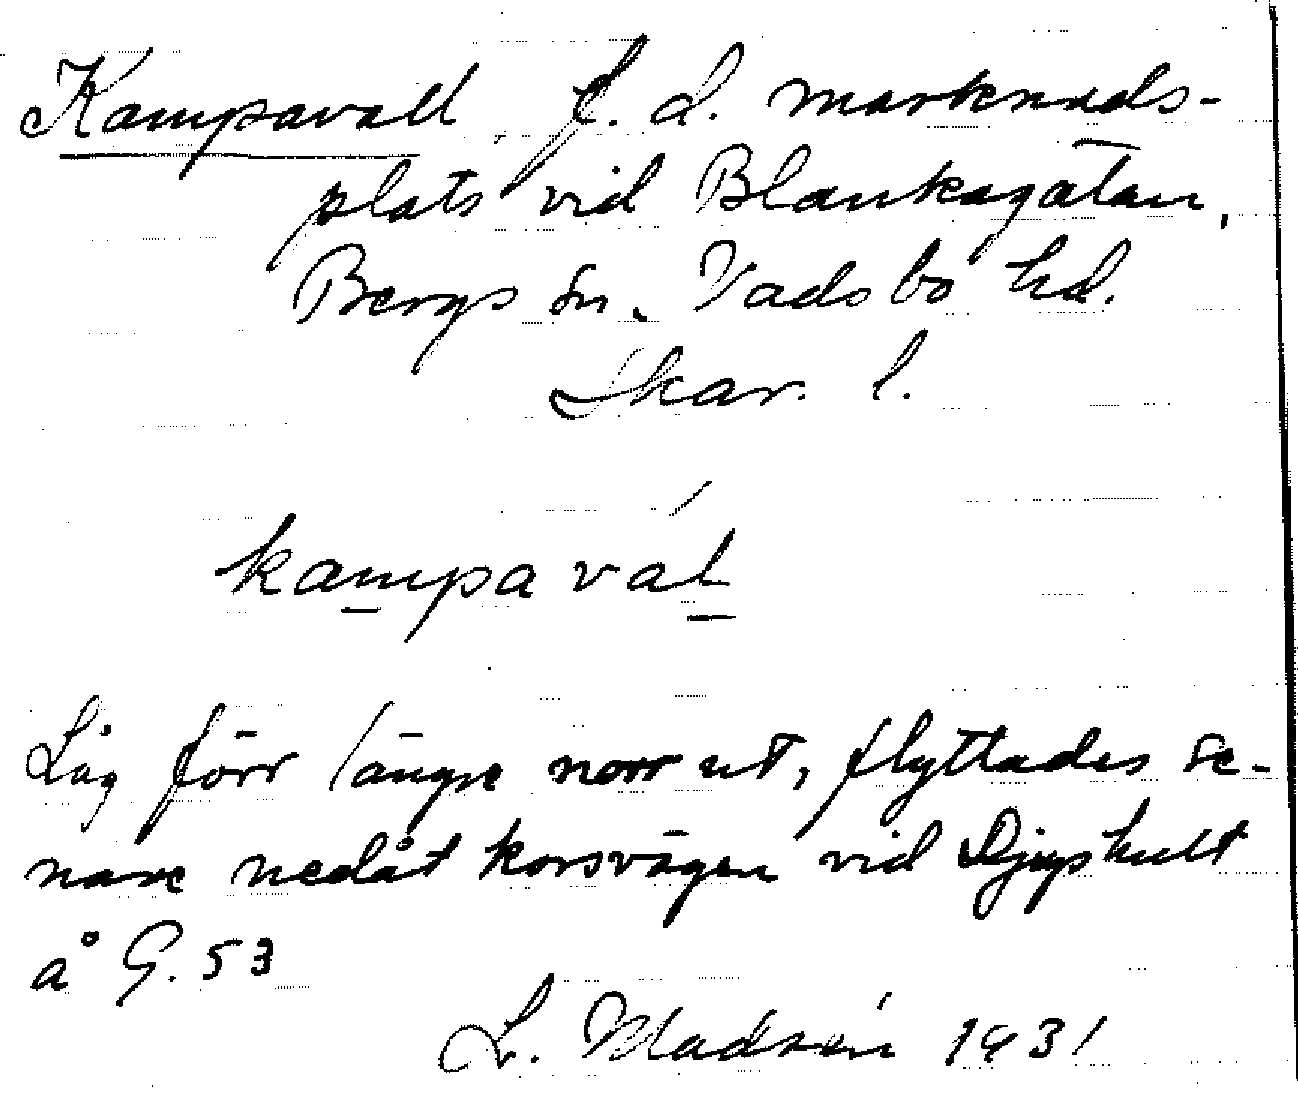 Kampavall, f. d. marknads-
plats vid Blankagatan,
Bergs sn. Vadsbo hd.
Skar. l.
kampavál
Låg förr längre norr ut, flyttades se-
nare nedåt korsvägen vid Djupshult
å G. 53
L. 1931